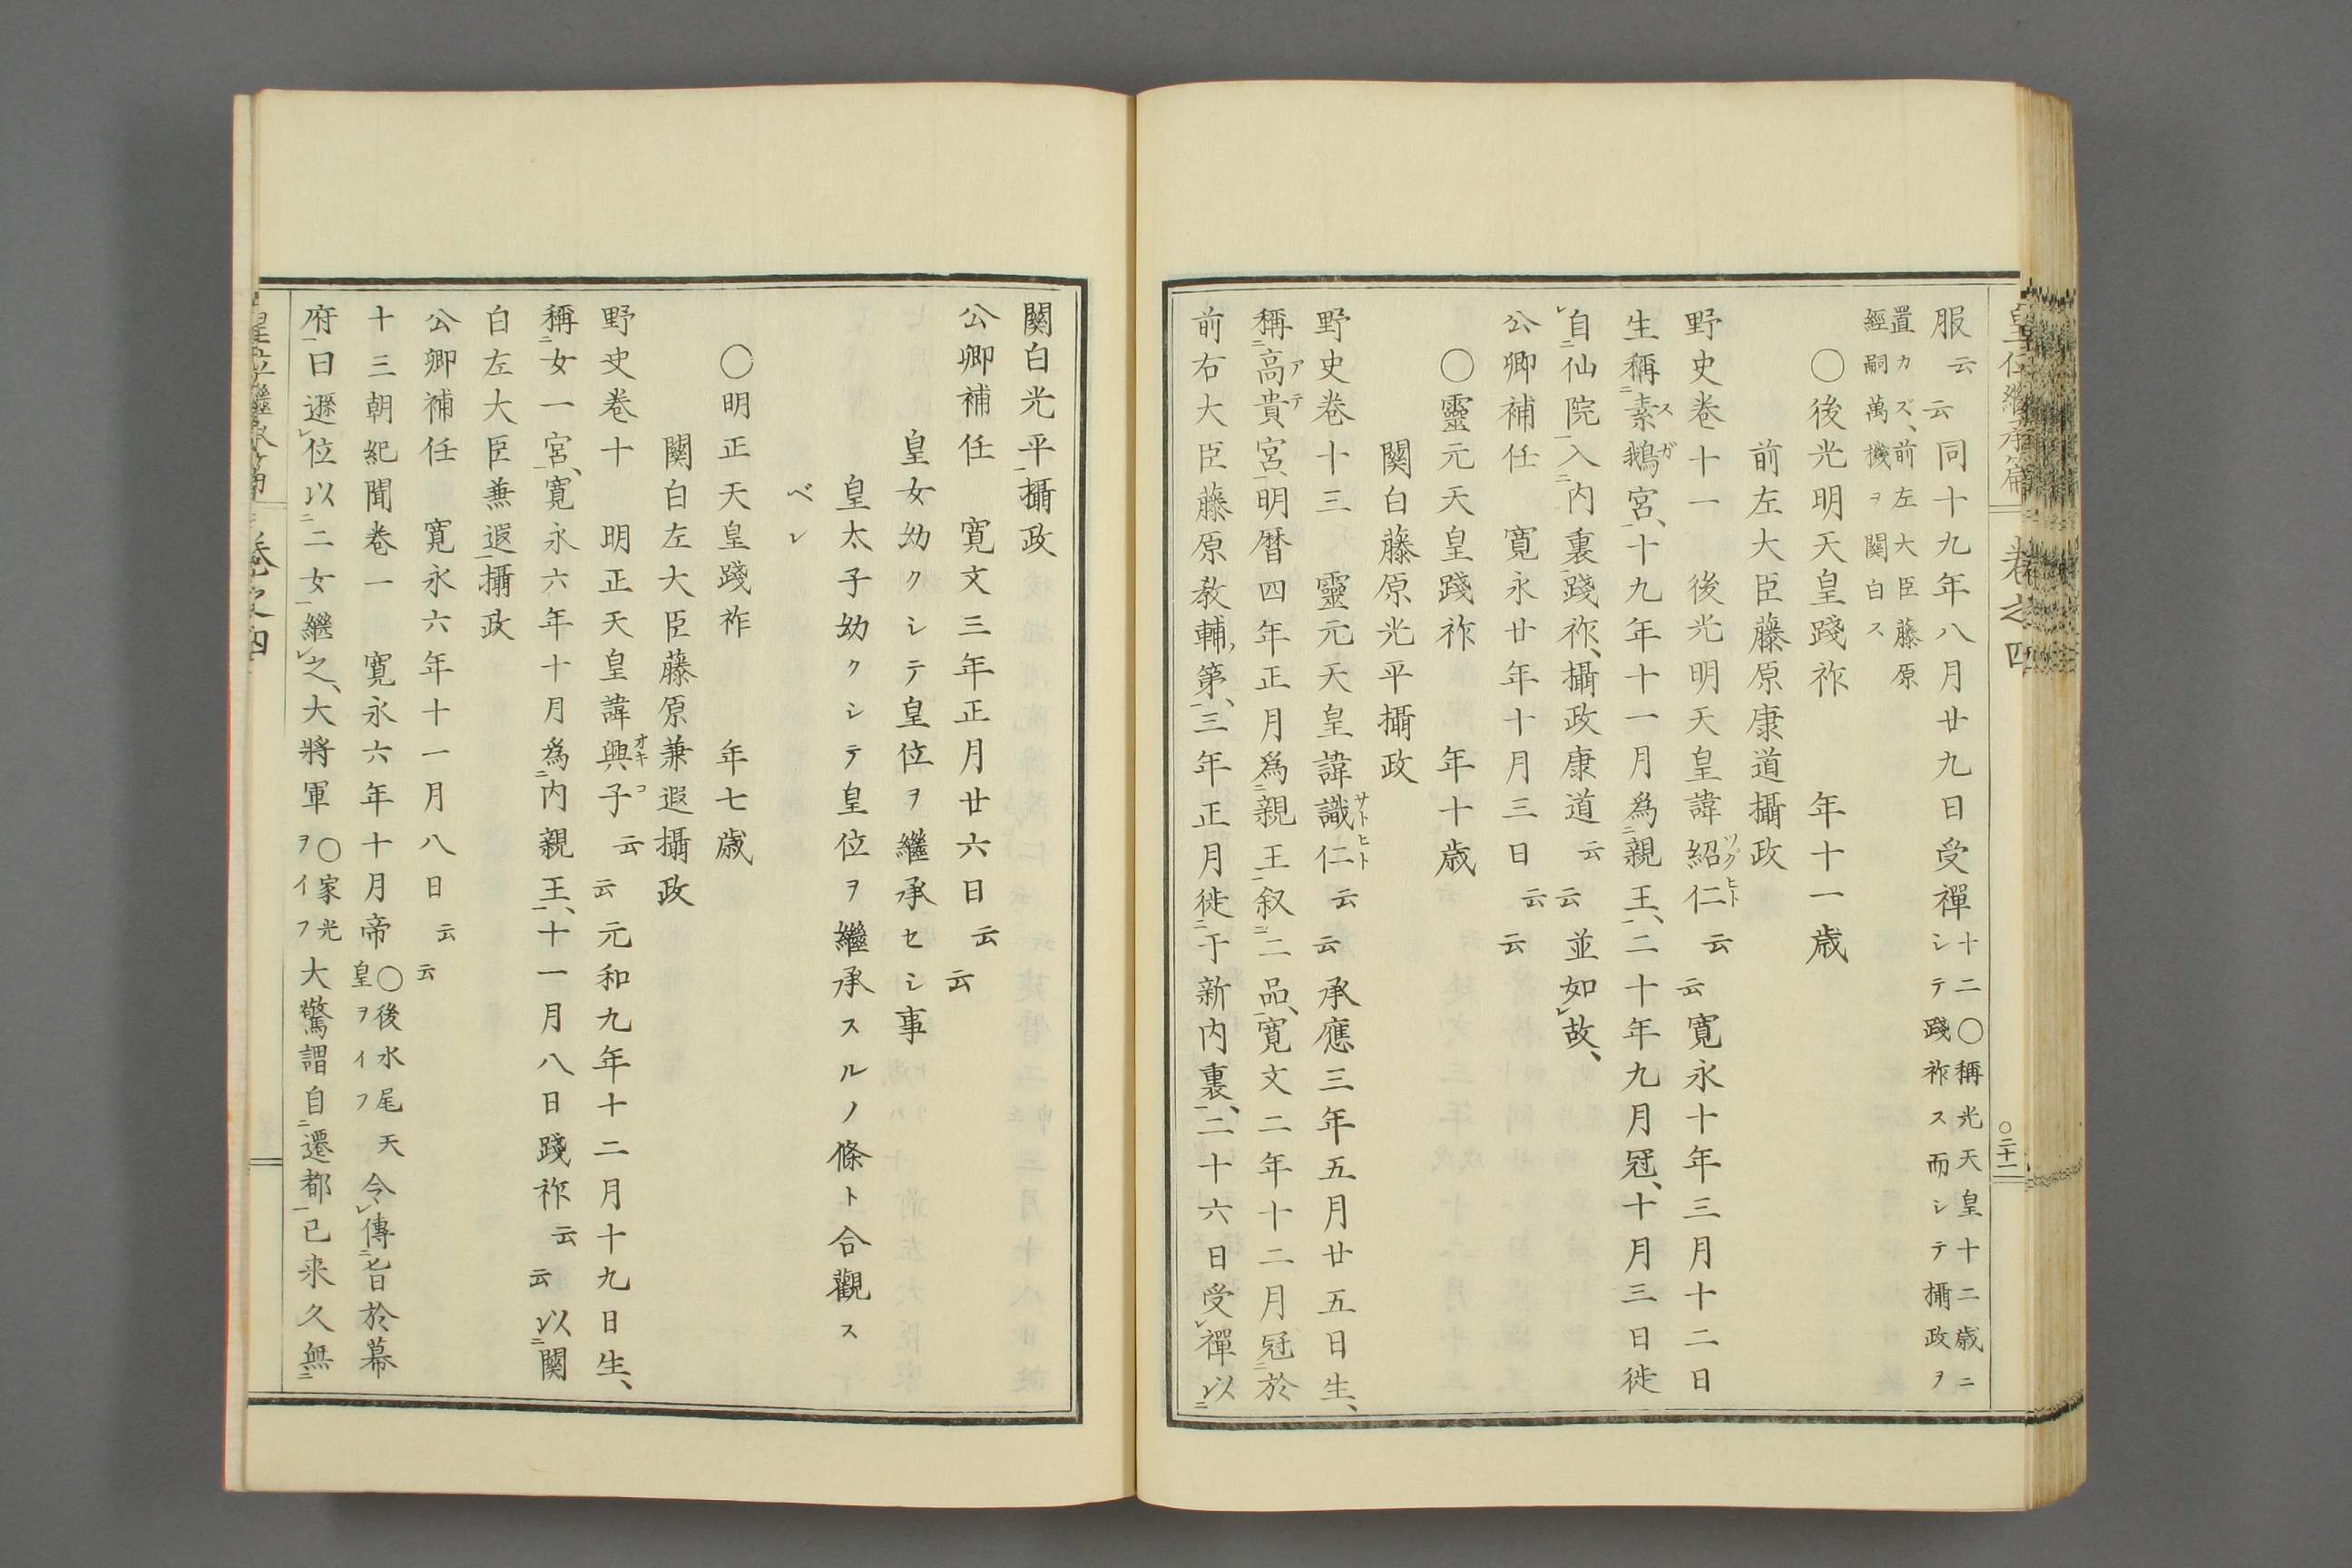 服云云同十九年八月廿九日受禪十二〇稱光天皇十二歳ニシテ踐祚ス而シテ攝政ヲ
置カズ、前左大臣藤原經嗣萬機ヲ關白ス
〇後光明天皇踐祚 年十一歳
前左大臣藤原康道攝政
野史巻十一 後光明天皇諱紹仁ツグヒト云云寛永十年三月十二日
生稱ニ素鵝スガ宮一、十九年十一月爲ニ親王一、二十年九月冠、十月三日徙
レ自ニ仙院一入ニ内裏一踐祚、攝政康道云云並如レ故、
公卿補任 寛永廿年十月三日云云
〇靈元天皇踐祚 年十歳
關白藤原光平攝政
野史巻十三 靈元天皇諱識仁サトヒト云云承應三年五月廿五日生、
稱ニ高貴アテ宮一、明暦四年正月爲ニ親王一叙ニ二品一、寛文二年十二月冠ニ於
前右大臣藤原教輔第一、三年正月徙ニ于新内裏一、二十六日受レ禪以ニ
關白光平一攝政
公卿補任 寛文三年正月廿六日云云
皇女幼クシテ皇位ヲ繼承セシ事
皇太子幼クシテ皇位ヲ繼承スルノ條ト合觀ス
ベシ
〇明正天皇踐祚 年七歳
關白左大臣藤原兼遐攝政
野史巻十 明正天皇諱興子オキコ云云元和九年十二月十九日生、
稱ニ女一宮一、寛永六年十月爲ニ内親王一、十一月八日踐祚云云以ニ關
白左大臣兼遐一攝政
公卿補任 寛永六年十一月八日云云
十三朝紀聞巻一 寛永六年十月帝〇後水尾天皇ヲイフ令レ傳ニ旨於幕
府一曰遜レ位以ニ二女一繼レ之、大將軍〇家光ヲイフ大驚謂自ニ遷都一已来久無ニ
皇位繼承篇 巻之四 〇三十一
皇位繼承篇 巻之四